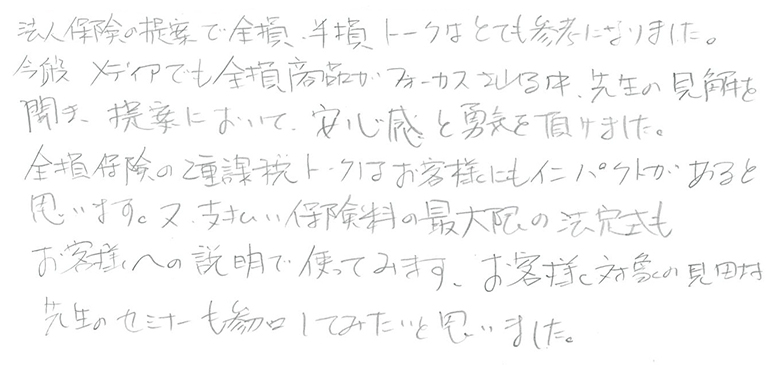 法人保険の提案で全損、半損トークはとても参考になりました。
今般 メディアでも全損商品がフォーカスされる中、先生の見解を
聞き、提案において、安心感と勇気を頂けました。
全損保険の2重課税トークはお客様にもインパクトがあると
思います。又、支払い保険料の最大限の法定式も
お客様への説明で使ってみます、お客様対象の見田村
先生のセミナーも参加してみたいと思いました。